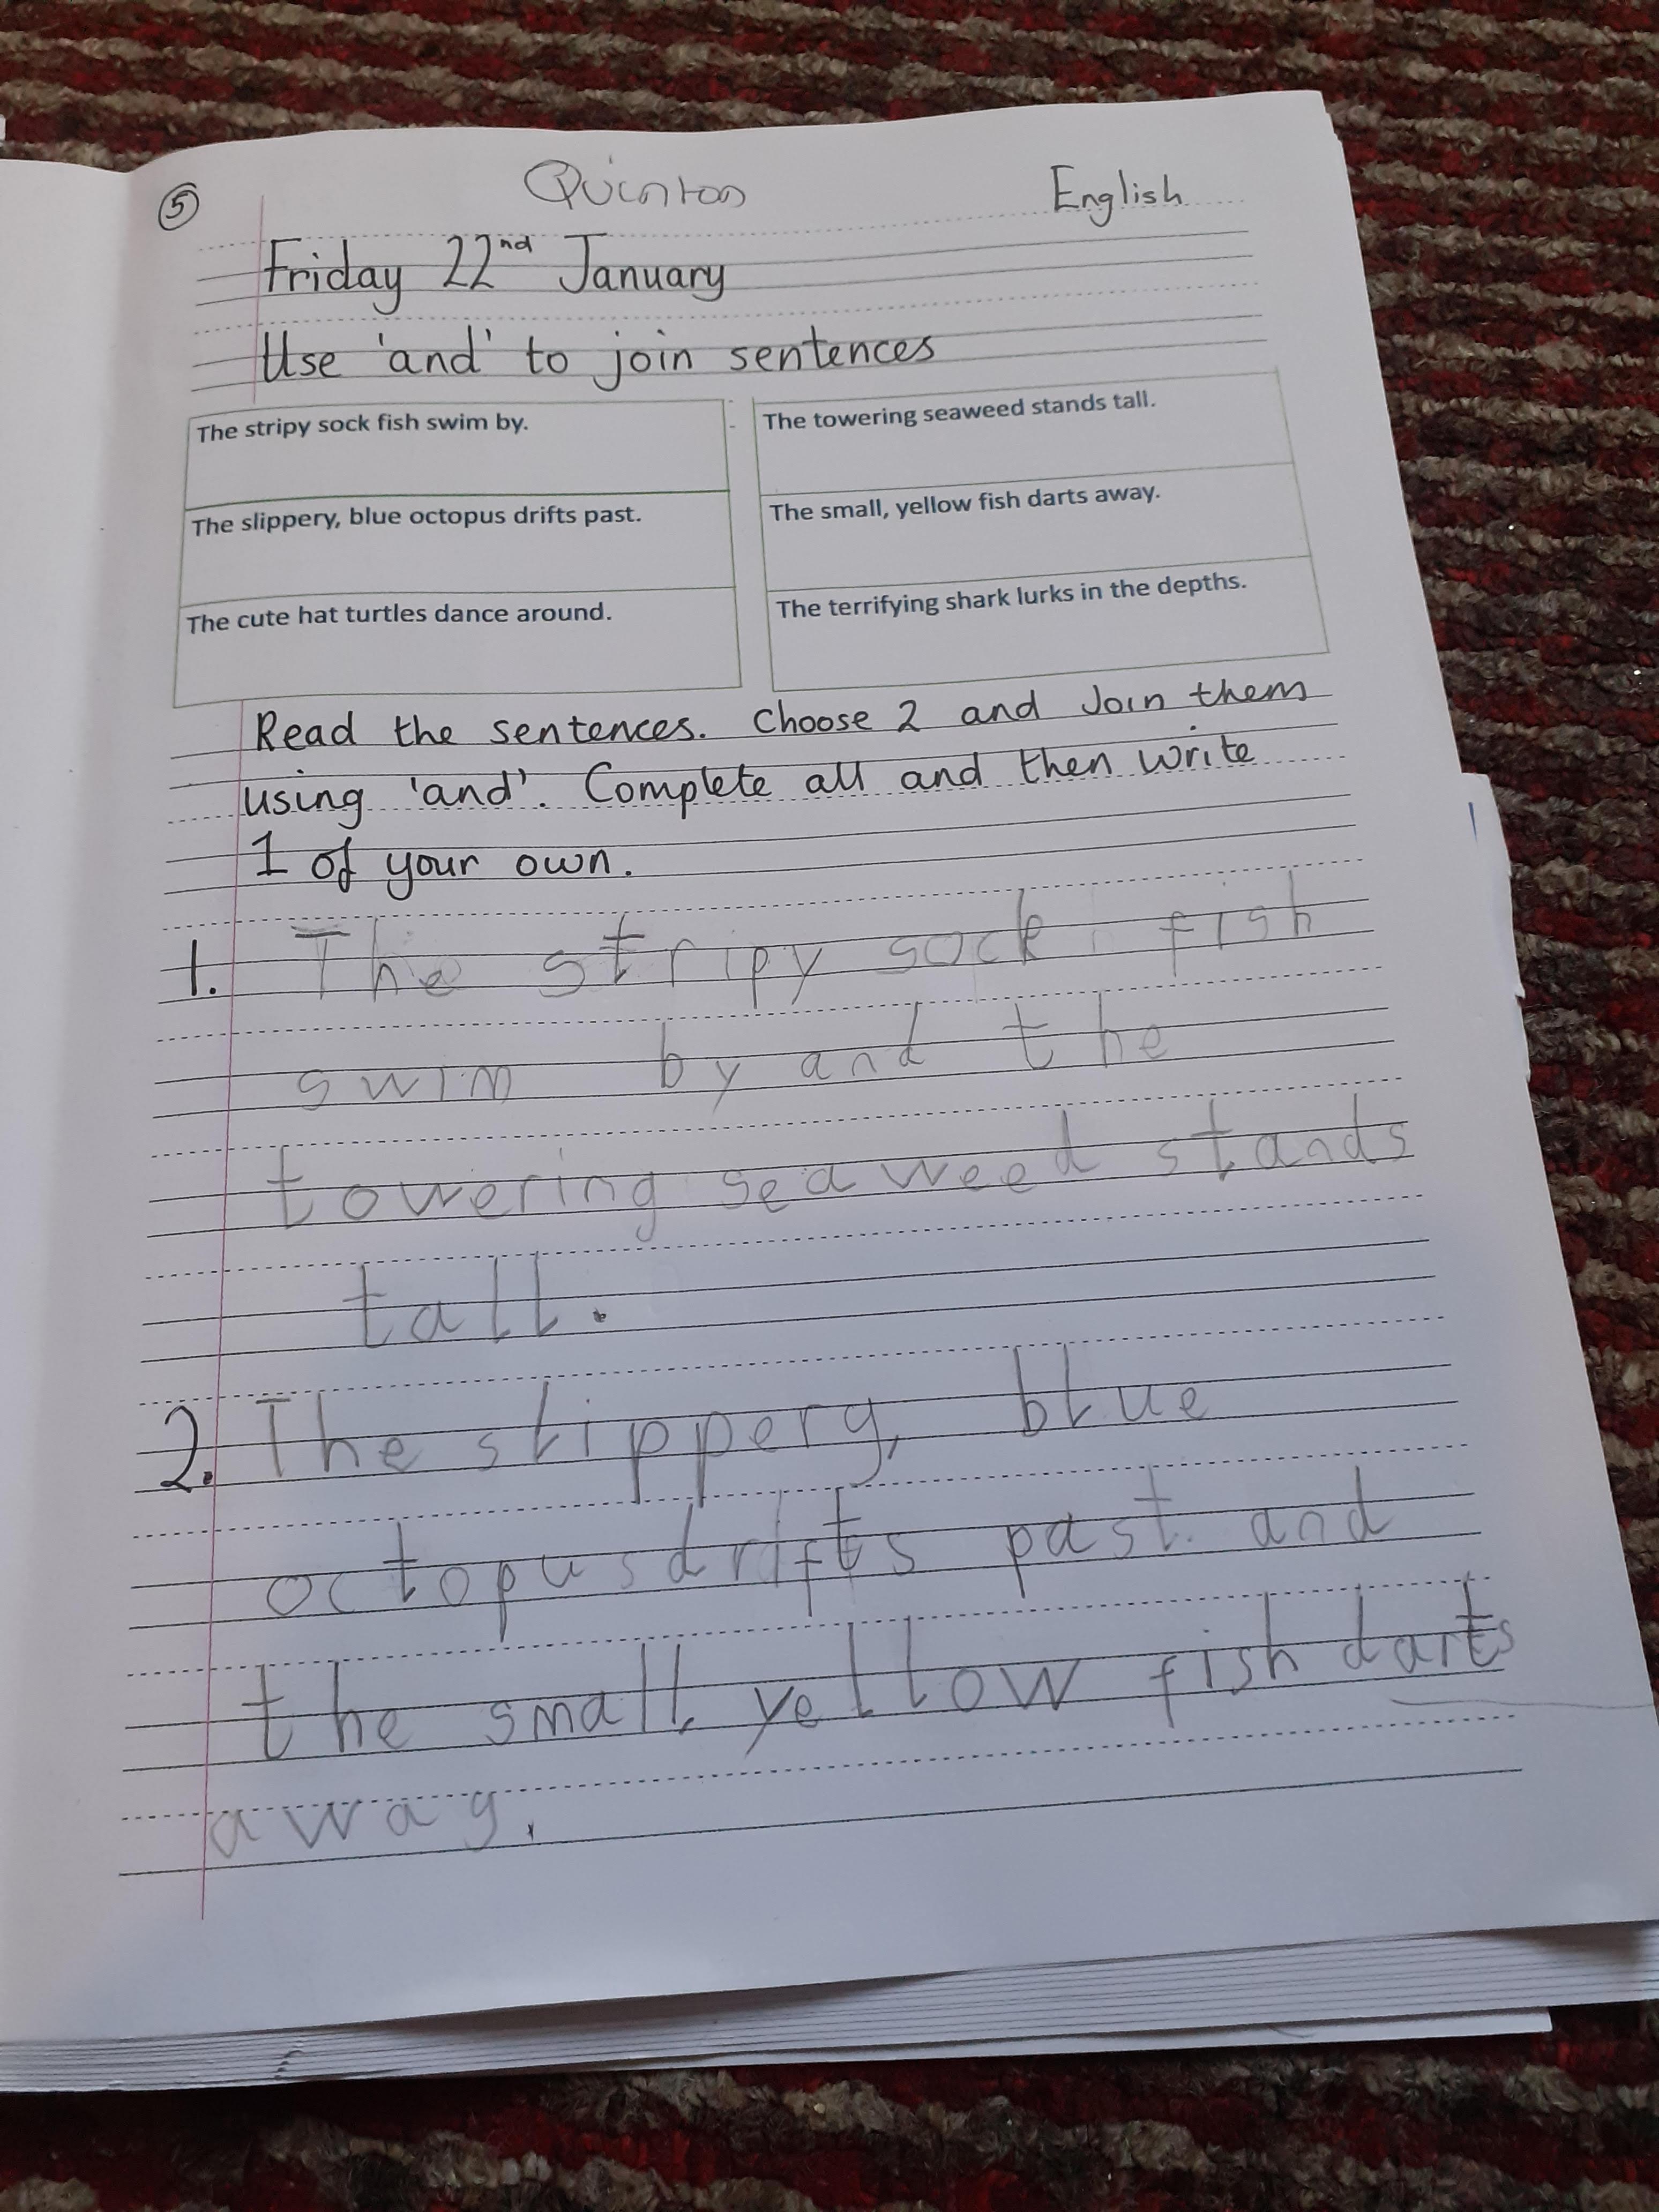 5 Quinton English
Friday 22nd January
Use 'and' to join sentences
The stripy sock fish swim by.
The slippery, blue octopus drifts past.
The cute hat turtles dance around.
The towering seaweed stands tall.
The small, yellow fish darts away.
The terrifying shark lurks in the depths.
Read the sentences. Choose 2 and Join them
using 'and'. Complete all and then write
1 of your own.
1. The stripy sock fish
swim by and the
towering seaweed stands
tall.
2. The slippery, blue
octopus drifts past. and
the small, yellow fish darts
away.